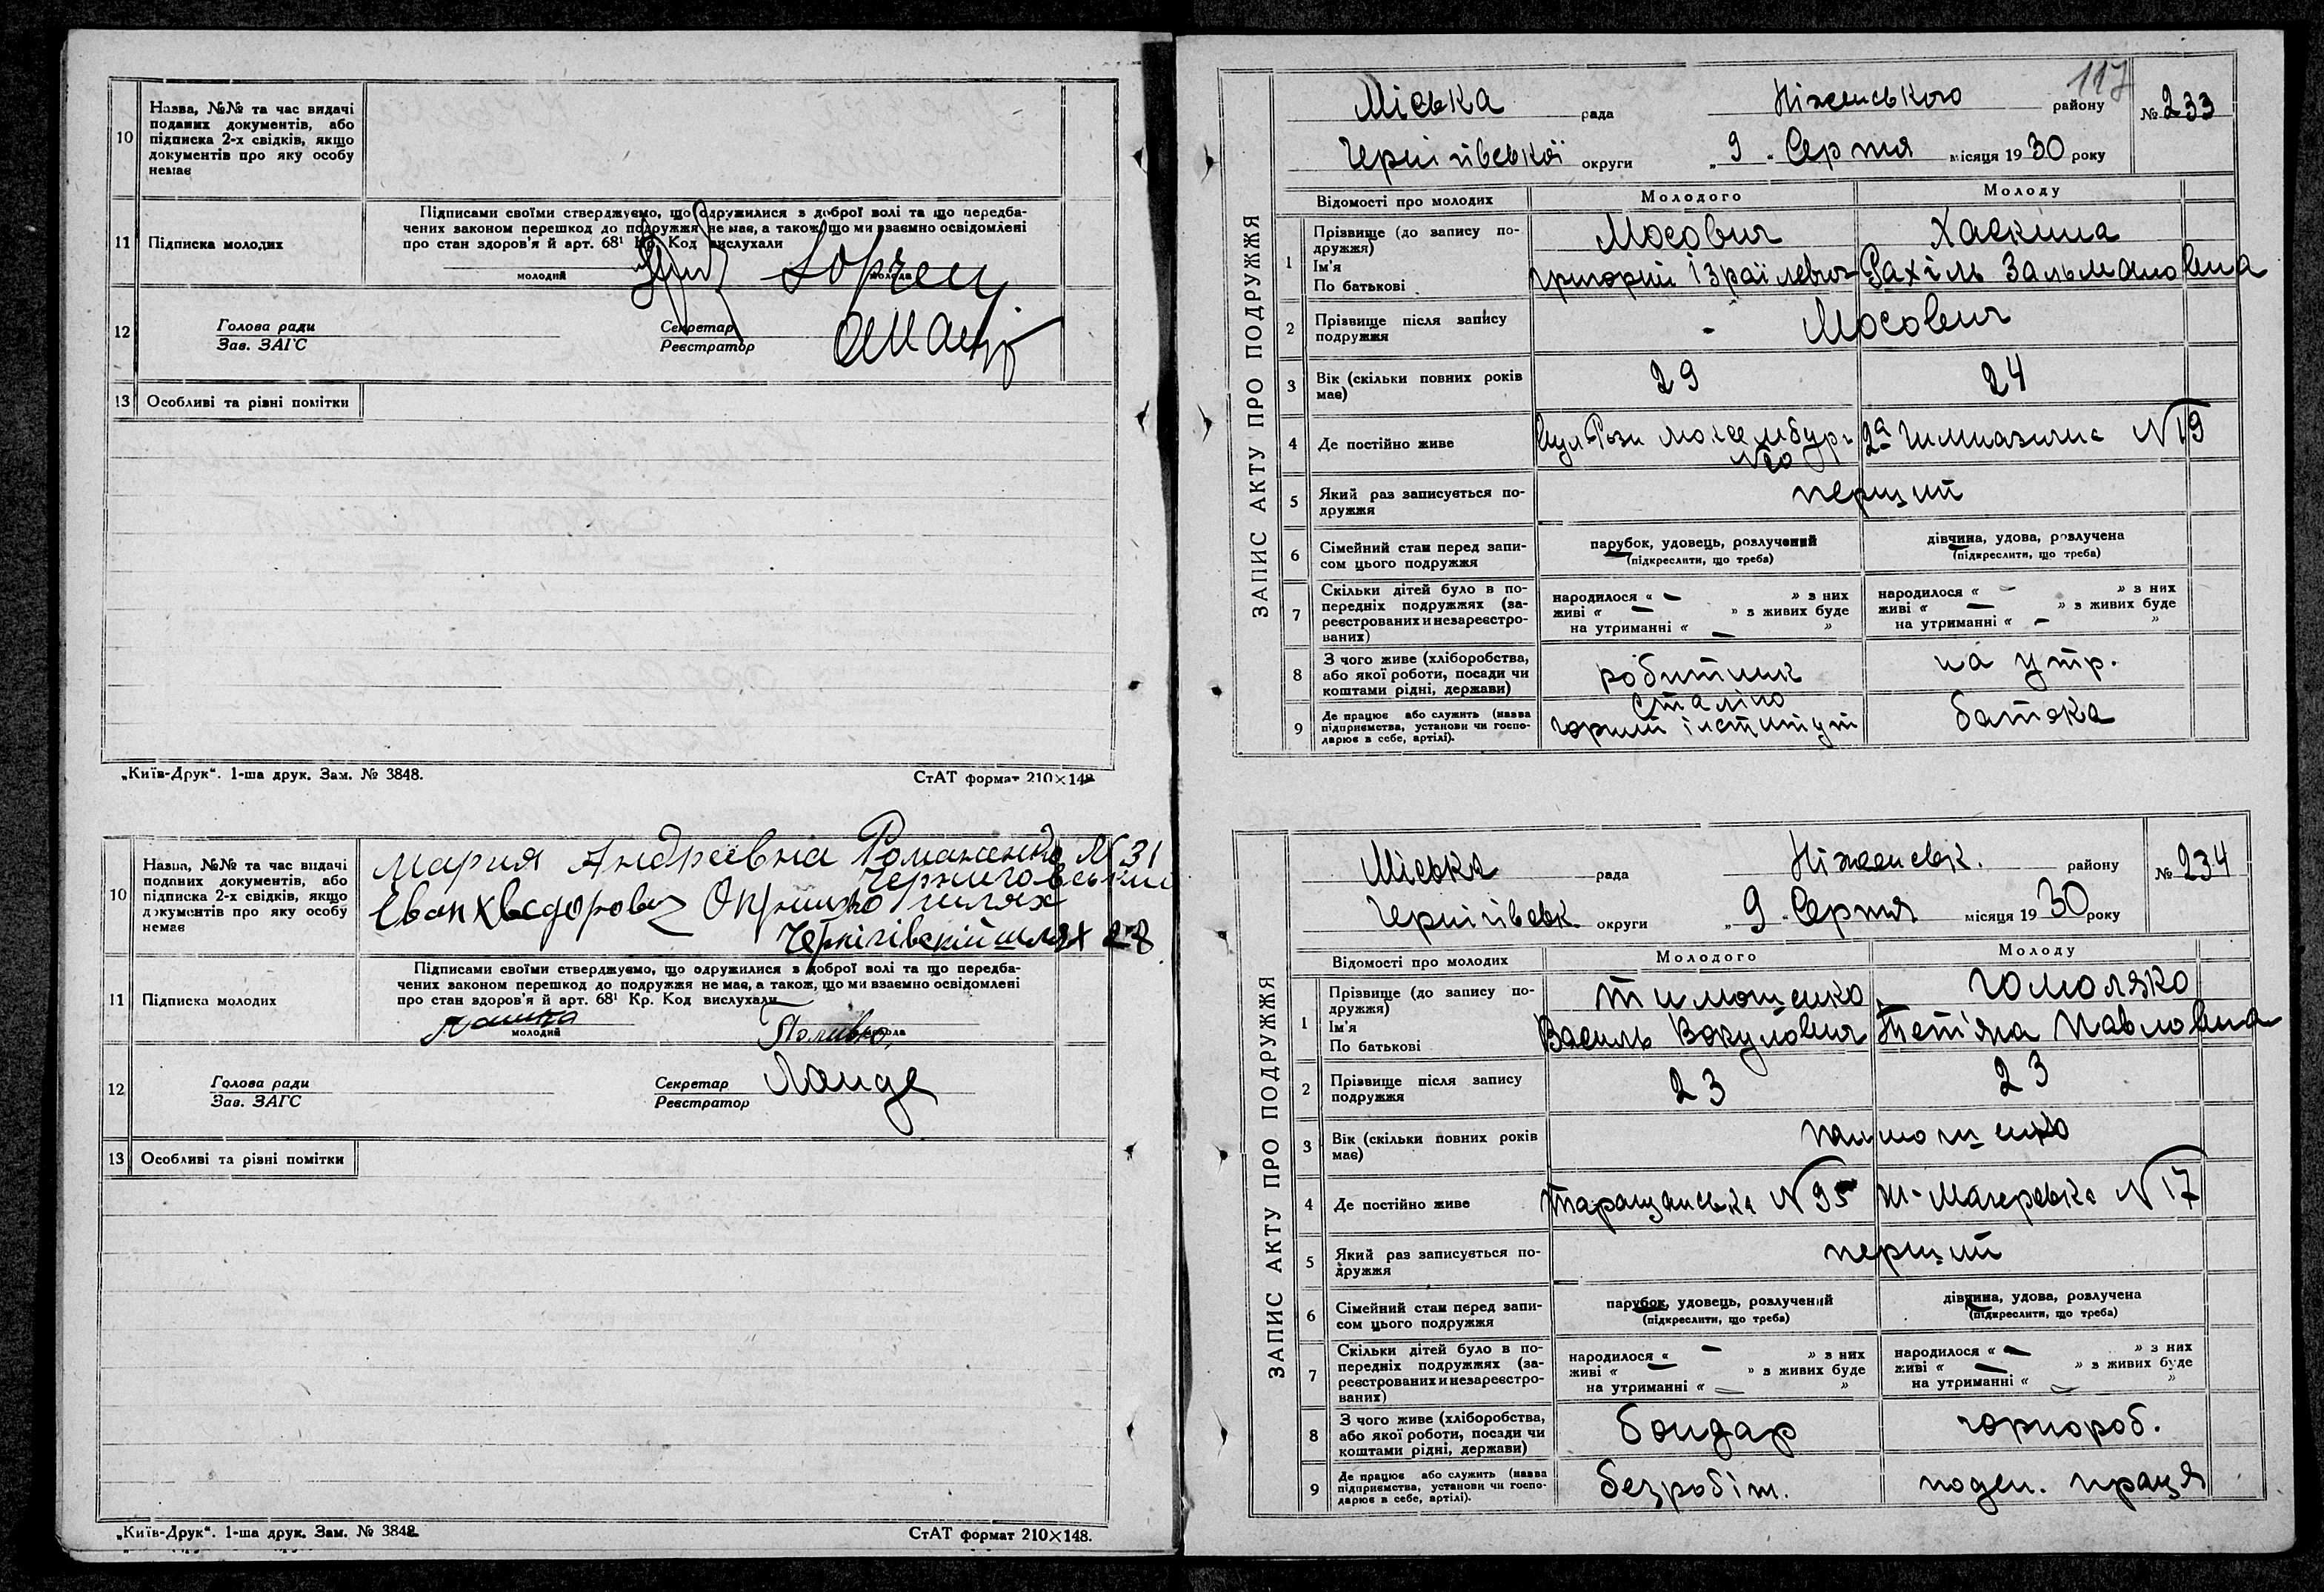 10
Назва, №№ та час видачі
поданих документів, або
підписка 2-х свідків, якщо
документів про яку особу
немає
11 Підписка молодих
Підписами своїми стверджуємо, що одружилися з доброї волі та що передба-
чених законом перешкод до подружжя не має, а також, що ми взаємно освідомлені
про стан здоров'я й арт. 68¹ Кр. Код вислухали
молодий молода
12
Голова ради
Зав. ЗАГС
Секретар
Реєстратор
13 Особливі та різні помітки
„Київ-Друк“. 1-ша друк. Зам. № 3848.
СтАТ формат 210×148
10
Назва, №№ та час видачі
поданих документів, або
підписка 2-х свідків, якщо
документів про яку особу
немає
Мария Андреевна Романенко № 31
Черниговський
шлях
Чернігівский шлях 28
11 Підписка молодих
Підписами своїми стверджуємо, що одружилися з доброї волі та що передба-
чених законом перешкод до подружжя не має, а також, що ми взаємно освідомлені
про стан здоров'я й арт. 68¹ Кр. Код вислухали
молодий молода
12
Голова ради
Зав. ЗАГС
Секретар
Реєстратор
Ланде
13 Особливі та різні помітки
„Київ-Друк“. 1-ша друк. Зам. № 3848
СтАТ формат 210×148.
117
Міська рада Ніженського району № 233
Чернігівської округи „9„ Серпня місяця 1930 року
ЗАПИС АКТУ ПРО ПОДРУЖЖЯ
Відомості про молодих Молодого Молоду
1
Прізвище (до запису по-
дружжя)
Ім'я
По батькові
Мосович Хаскина
Григорий Ізраїлевич Рахіль Зальмановна
2
Прізвище після запису
подружжя
- Мосович
3
Вік (скільки повних років
має)
29 24
4 Де постійно живе
вул Рози Люксембург 2а Гимназична N 19
5
Який раз записується по-
дружжя
перший
6
Сімейний стан перед запи-
сом цього подружжя
парубок, удовець, розлучений
(підкреслити, що треба)
дівчина, удова, розлучена
(підкреслити, що треба)
7
Скільки дітей було в по-
передніх подружжях (за-
реєстрованих и незареєстро-
ваних)
народилося « – » з них
живі « – » з живих буде
на утриманні « – »
народилося « – » з них
живі « – » з живих буде
на утриманні « – »
8
З чого живе (хліборобства,
або якої роботи, посади чи
коштами рідні, держави)
робитник на утр.
9
Де працює або служить (назва
підприємства, установи чи госпо-
дарює в себе, артілі).
Сталіно
горний інститут батька
Міська рада Ніженськ. району № 234
Чернігівськ. округи „9„ Серпня місяця 1930 року
ЗАПИС АКТУ ПРО ПОДРУЖЖЯ
Відомості про молодих Молодого Молоду
1
Прізвище (до запису по-
дружжя)
Ім'я
По батькові
Тимошенко Гомоляко
Василь Вакулович Тетяна Павловна
2
Прізвище після запису
подружжя
23 23
3
Вік (скільки повних років
має)
Тимошенко
4 Де постійно живе
Таращанська N 95 М-Магерська N 17
5
Який раз записується по-
дружжя
перший
6
Сімейний стан перед запи-
сом цього подружжя
парубок, удовець, розлучений
(підкреслити, що треба)
дівчина, удова, розлучена
(підкреслити, що треба)
7
Скільки дітей було в по-
передніх подружжях (за-
реєстрованих и незареєстро-
ваних)
народилося « – » з них
живі « – » з живих буде
на утриманні « – »
народилося « – » з них
живі « – » з живих буде
на утриманні « – »
8
З чого живе (хліборобства,
або якої роботи, посади чи
коштами рідні, держави)
бондар чорнороб.
9
Де працює або служить (назва
підприємства, установи чи госпо-
дарює в себе, артілі).
безробіт. поден. праця